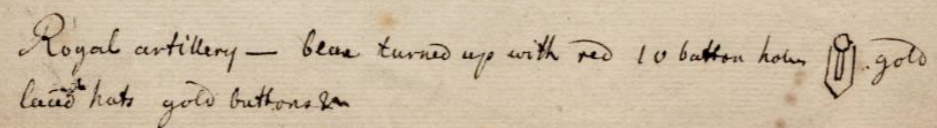 Royal artillery — blue turned up with red 10 button holes gold
laced hats gold buttons &c